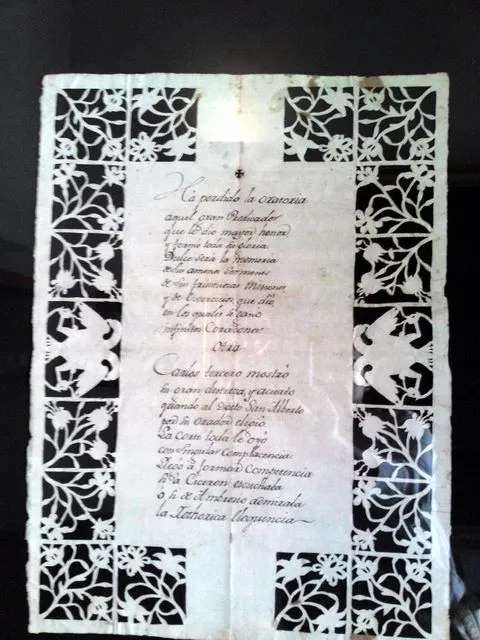 Ha perdido la oratoria
aquel gran Predicador
que le dio mayor honor
y formó toda su gloria
Dulce será la memoria
de sus amenos Sermones
de sus fructuosas Misiones,
y de Exercicios que dió,
en los quales se ganó
infinitos Corazones
Otra
Carlos tercero mostró
su gran destreza, y acierto
quando al Docto San Alberto
por su orador eligió
La Corte toda le oyó
con singular Complacencia
Llegó a formar Competencia
si a Ciceron escuchaba
o si de Ambrosio admiraba
la Rethorica Eloquencia